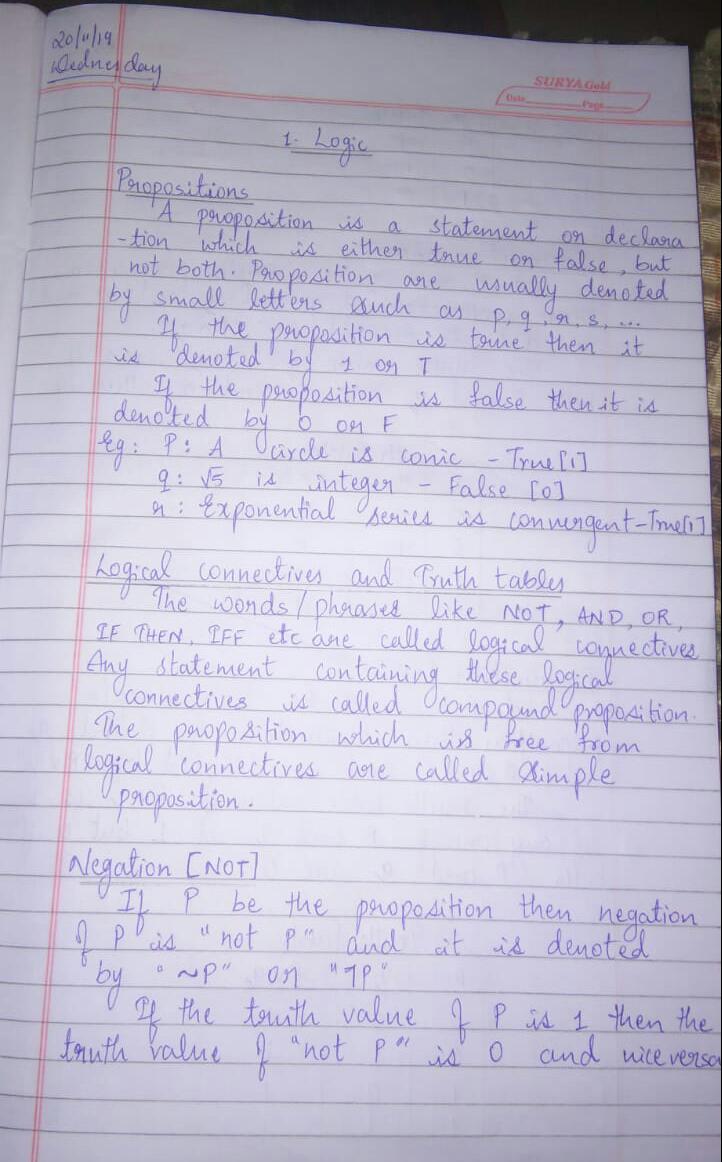 20/11/19
Wednesday
SURYA Gold
Date Page
1. Logic
Propositions
A proposition is a statement or declara
-tion which is either true or false, but
not both. Proposition are usually denoted
by small letters such as p, q, r, s, ...
If the proposition is true then it
is denoted by 1 or T
If the proposition is false then it is
denoted by 0 or F
Eg: P: A circle is conic - True [1]
q: √5 is integer - False [0]
r: Exponential series is convergent - True[1]
Logical connectives and Truth tables
The words/phrases like NOT, AND, OR,
IF THEN, IFF etc are called logical connectives
Any statement containing these logical
connectives is called compound proposition.
The proposition which is free from
logical connectives are called simple
proposition.
Negation [NOT]
If P be the proposition then negation
of P is "not P" and it is denoted
by "~P" or "7P"
If the truth value of P is 1 then the
truth value of "not P" is 0 and vice versa